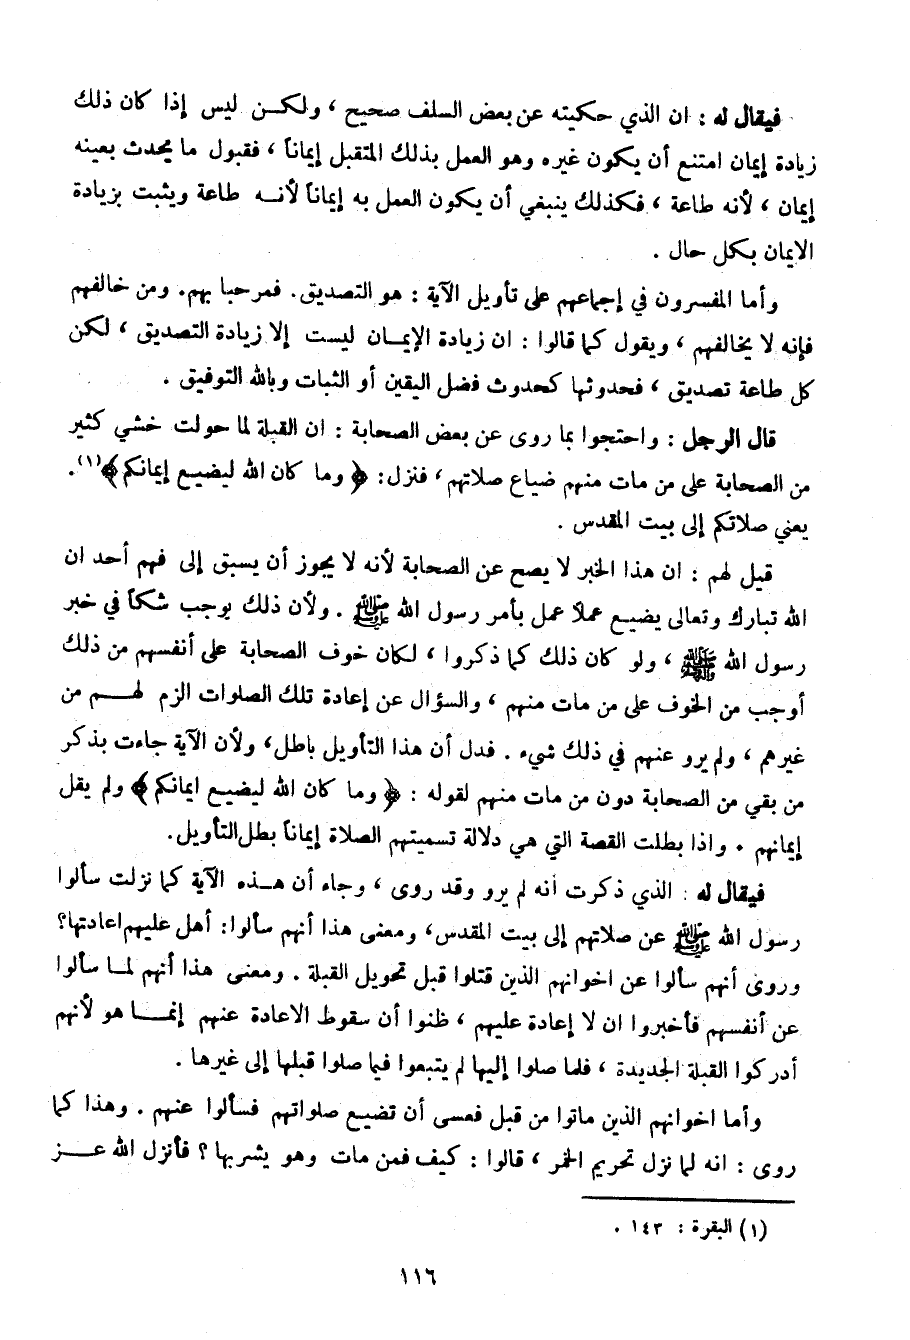 فيقال له : ان الذي حكيته عن بعض السلف صحيح ، ولكن ليس إذا كان ذلك
زيادة إيمان امتنع أن يكون غيره وهو العمل بذلك المتقبل إيماناً ، فقبول ما يحدث بعينه
إيمان ، لأنه طاعة ، فكذلك ينبغي أن يكون العمل به إيماناً لأنه طاعة ويثبت بزيادة
الايمان بكل حال .
وأما المفسرون في إجماعهم على تأويل الآية : هو التصديق. فمرحبا بهم. ومن خالفهم
فإنه لا يخالفهم ، ويقول كما قالوا : ان زيادة الإيمان ليست إلا زيادة التصديق ، لكن
كل طاعة تصديق ، فحدوثها كحدوث فضل اليقين أو الثبات وبالله التوفيق .
قال الرجل : واحتجوا بما روى عن بعض الصحابة : ان القبلة لما حولت خشي كثير
من الصحابة على من مات منهم ضياع صلاتهم ، فنزل: ﴿ وما كان الله ليضيع إيمانكم ﴾(١).
يعني صلاتكم إلى بيت المقدس .
قيل لهم : ان هذا الخبر لا يصح عن الصحابة لأنه لا يجوز أن يسبق إلى فهم أحد ان
الله تبارك وتعالى يضيع عملاً عمل بأمر رسول الله ﷺ . ولأن ذلك يوجب شكاً في خبر
رسول الله ﷺ ، ولو كان ذلك كما ذكروا ، لكان خوف الصحابة على أنفسهم من ذلك
أوجب من الخوف على من مات منهم ، والسؤال عن إعادة تلك الصلوات الزم لهم من
غيرهم ، ولم يرو عنهم في ذلك شيء . فدل أن هذا التأويل باطل، ولأن الآية جاءت بذكر
من بقي من الصحابة دون من مات منهم لقوله : ﴿ وما كان الله ليضيع ايمانكم ﴾ ولم يقل
إيمانهم . واذا بطلت القصة التي هي دلالة تسميتهم الصلاة إيماناً بطل التأويل.
فيقال له : الذي ذكرت انه لم يرو وقد روى ، وجاء أن هذه الآية كما نزلت سألوا
رسول الله ﷺ عن صلاتهم إلى بيت المقدس، ومعنى هذا أنهم سألوا: أهل عليهم اعادتها؟
وروى أنهم سألوا عن اخوانهم الذين قتلوا قبل تحويل القبلة . ومعنى هذا أنهم لما سألوا
عن أنفسهم فأخبروا ان لا إعادة عليهم ، ظنوا أن سقوط الاعادة عنهم إنما هو لأنهم
أدركوا القبلة الجديدة ، فلما صلوا إليها لم يتبعوا فيما صلوا قبلها إلى غيرها .
وأما اخوانهم الذين ماتوا من قبل فعسى أن تضيع صلواتهم فسألوا عنهم . وهذا كما
روى : انه لما نزل تحريم الخمر ، قالوا : كيف فمن مات وهو يشربها ؟ فأنزل الله عز
(١) البقرة : ١٤٣ .
١١٦